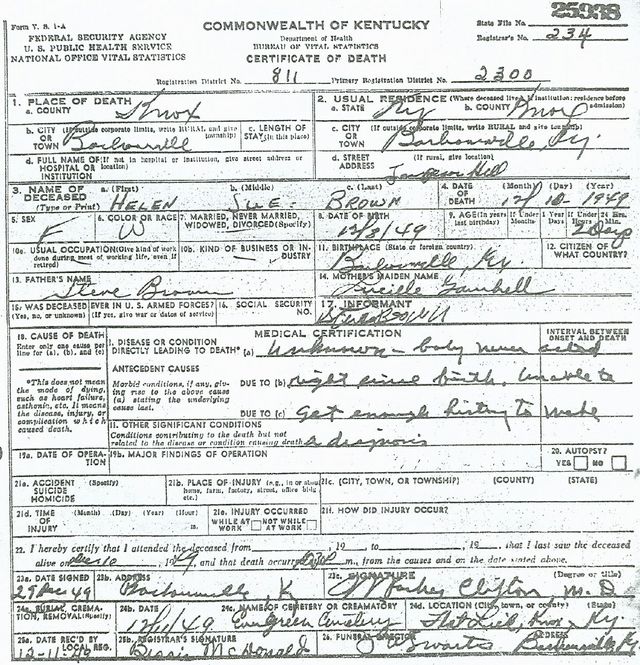 25938
Form V. S. 1-A
COMMONWEALTH OF KENTUCKY
State File No.
FEDERAL SECURITY AGENCY
Department of Health
Registrar's No. 234
U. S. PUBLIC HEALTH SERVICE
BUREAU OF VITAL STATISTICS
NATIONAL OFFICE VITAL STATISTICS
CERTIFICATE OF DEATH
Registration District No. 811 Primary Registration District No. 2300
1. PLACE OF DEATH
a. COUNTY Knox
2. USUAL RESIDENCE (Where deceased lived. If institution: residence before admission)
a. STATE Ky b. COUNTY Knox
b. CITY (If outside corporate limits, write RURAL and give township) OR TOWN Barbourville
c. LENGTH OF STAY (in this place)
c. CITY (If outside corporate limits, write RURAL and give township) OR TOWN Barbourville, Ky.
d. FULL NAME OF (If not in hospital or institution, give street address or location) HOSPITAL OR INSTITUTION
d. STREET ADDRESS (If rural, give location) Hill
3. NAME OF DECEASED (Type or Print)
a. (First) HELEN b. (Middle) SUE c. (Last) BROWN
4. DATE OF DEATH (Month) (Day) (Year) 12/ 10 - 1949
5. SEX F
6. COLOR OR RACE W
7. MARRIED, NEVER MARRIED, WIDOWED, DIVORCED (Specify)
8. DATE OF BIRTH 12/8/49
9. AGE (In years last birthday) If Under 1 Year Months Days If Under 24 Hrs. Hours Min. 2 Days
10a. USUAL OCCUPATION (Give kind of work done during most of working life, even if retired)
10b. KIND OF BUSINESS OR INDUSTRY
11. BIRTHPLACE (State or foreign country) Barbourville, Ky
12. CITIZEN OF WHAT COUNTRY?
13. FATHER'S NAME Steve Brown
14. MOTHER'S MAIDEN NAME Lucille Gambell
15. WAS DECEASED EVER IN U. S. ARMED FORCES? (Yes, no, or unknown) (If yes, give war or dates of service)
16. SOCIAL SECURITY NO.
17. INFORMANT
18. CAUSE OF DEATH
Enter only one cause per line for (a), (b), and (c)
MEDICAL CERTIFICATION
INTERVAL BETWEEN ONSET AND DEATH
I. DISEASE OR CONDITION DIRECTLY LEADING TO DEATH* (a) Unknown - baby never acted
*This does not mean the mode of dying, such as heart failure, asthenia, etc. It means the disease, injury, or complication which caused death.
ANTECEDENT CAUSES
Morbid conditions, if any, giving rise to the above cause (a) stating the underlying cause last.
DUE TO (b) right since birth. Unable to
DUE TO (c) get enough history to make
II. OTHER SIGNIFICANT CONDITIONS
Conditions contributing to the death but not related to the disease or condition causing death. a diagnosis
19a. DATE OF OPERATION
19b. MAJOR FINDINGS OF OPERATION
20. AUTOPSY? YES NO
21a. ACCIDENT SUICIDE HOMICIDE (Specify)
21b. PLACE OF INJURY (e.g., in or about home, farm, factory, street, office bldg etc.)
21c. (CITY, TOWN, OR TOWNSHIP) (COUNTY) (STATE)
21d. TIME OF INJURY (Month) (Day) (Year) (Hour) m.
21e. INJURY OCCURRED WHILE AT WORK NOT WHILE AT WORK
21f. HOW DID INJURY OCCUR?
22. I hereby certify that I attended the deceased from 19 to 19 , that I last saw the deceased
alive on Dec 10 , 1949, and that death occurred m., from the causes and on the date stated above.
23a. DATE SIGNED 29 Dec 49
23b. ADDRESS Barbourville, K
23c. SIGNATURE (Degree or title) Clifton M. D
24a. BURIAL, CREMATION, REMOVAL (Specify)
24b. DATE 12/11/49
24c. NAME OF CEMETERY OR CREMATORY Evergreen Cemetery
24d. LOCATION (City, town, or county) (State) Flat Lick, Knox Ky.
25a. DATE REC'D BY LOCAL REG. 12-11-49
25b. REGISTRAR'S SIGNATURE Bessie McDonald
26. FUNERAL DIRECTOR ADDRESS Barbourville Ky